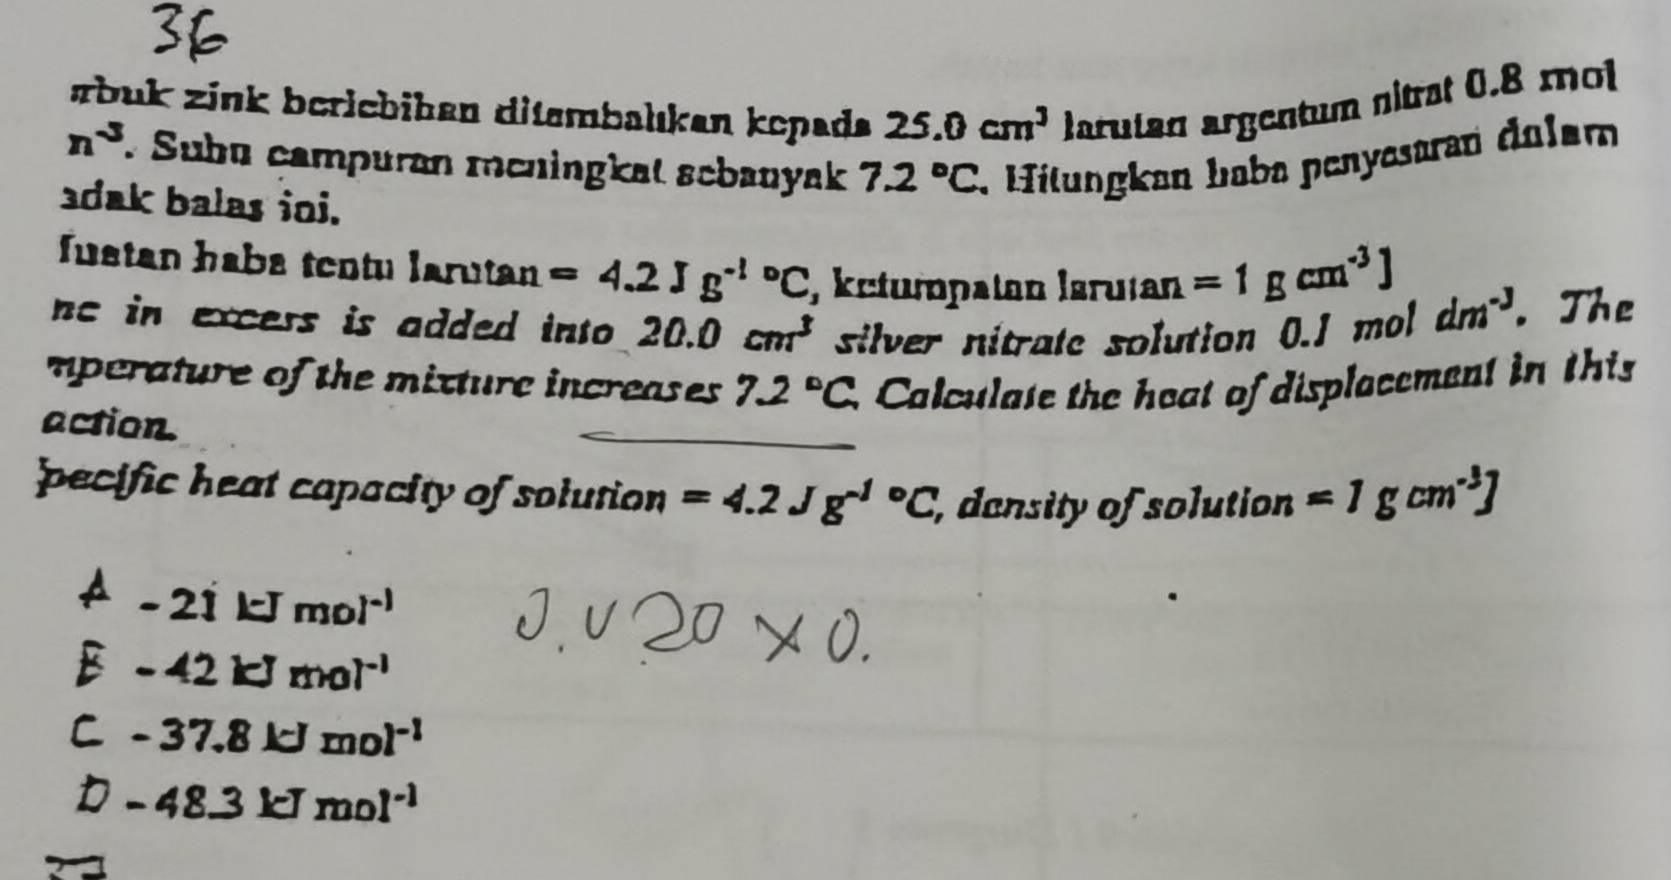 36
rbuk zink berlebihan ditambahkan kepada 25.0 cm³ larutan argentum nitrat 0.8 mol
n⁻³. Suhu campuran meningkat sebanyak 7.2 °C. Hitungkan haba penyesaran dalam
adak balas ini.
fuatan haba tentu larutan = 4.2 J g⁻¹ °C, ketumpatan larutan = 1 g cm⁻³]
nc in excess is added into 20.0 cm³ silver nitrate solution 0.1 mol dm⁻³. The
mperature of the mixture increases 7.2 °C. Calculate the heat of displacement in this
action.
pecific heat capacity of solution = 4.2 J g⁻¹ °C, density of solution = 1 g cm⁻³]
A -21 kJ mol⁻¹
B -42 kJ mol⁻¹
C -37.8 kJ mol⁻¹
D -48.3 kJ mol⁻¹
0.020 × 0.